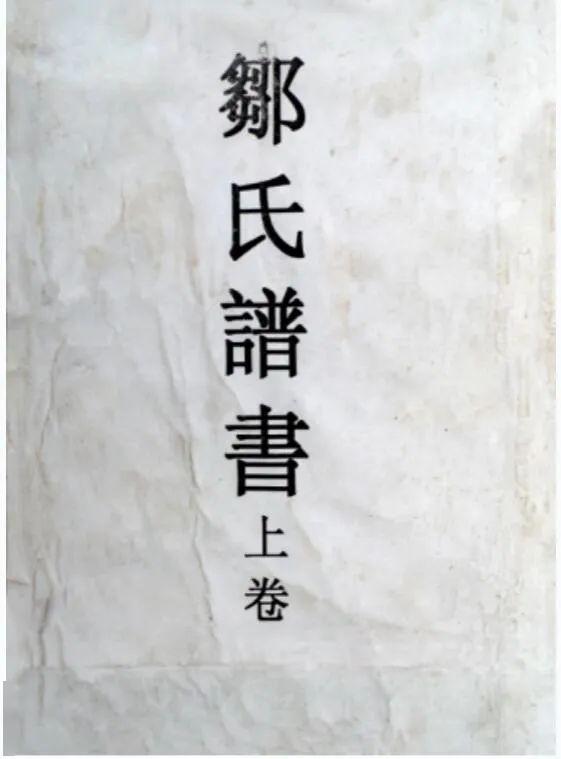 鄒氏譜書上卷